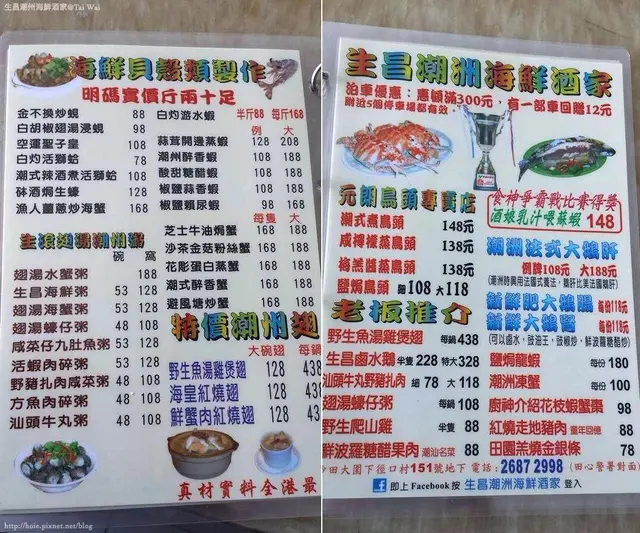 生昌潮州海鮮酒家@Tai Wai
海鮮貝殼類製作
明碼實價斤兩十足
金不換炒蜆 88
白胡椒翅湯浸蜆 98
空運聖子皇 108
白灼活獅蛤 78
潮式辣酒煮活獅蛤 108
砵酒焗生蠔 128
漁人薑蔥炒海蟹 168
白灼游水蝦 半斤88 每斤168
例 大
蒜茸開邊蒸蝦 128 208
潮州醉香蝦 108 188
酸甜糖醋蝦 108 188
椒鹽蒜香蝦 108 188
椒鹽賴尿蝦 98 168
每隻 大
芝士牛油焗蟹 168 188
沙茶金菇粉絲蟹 168 188
花彫蛋白蒸蟹 168 188
潮式醉香蟹 168 188
避風塘炒蟹 168 188
生滾翅湯潮州粥
碗 窩
翅湯水蟹粥 188
生昌海鮮粥 53 128
翅湯海蟹粥 53 128
翅湯蠔仔粥 48 108
咸菜仔九肚魚粥 53 128
活蝦肉碎粥 53 128
野豬扒肉咸菜粥 48 108
方魚肉碎粥 48 108
汕頭牛丸粥 48 108
特價潮州翅
大碗翅 每鍋
野生魚湯雞煲翅 128 438
海皇紅燒翅 128 438
鮮蟹肉紅燒翅 128 43
真材實料全港最
http://hoie.pixnet.net/blog
生昌潮洲海鮮酒家
泊車優惠：惠顧滿300元，有一部車回贈12元
附近5個停車場都有效
元朗烏頭專賣店
潮式煮烏頭 148元
咸檸檬蒸烏頭 138元
梅羔醬蒸烏頭 138元
鹽焗烏頭 細108 大118
食神爭霸戰比賽得獎
酒娘乳汁喂蒸蝦 148
潮洲法式大鵝肝
例牌108元 大188元
(潮洲時興用法國式養法，鵝肝比美法國鵝肝)
新鮮肥大鵝腸 每份118元
新鮮大鵝腎 每份118元
(可以鹵水，豉油王，豉椒炒，鮮波蘿糖醋炒)
老板推介
野生魚湯雞煲翅 每鍋438
生昌鹵水鵝 半隻228 特大328
汕頭牛丸野豬扎肉 細78 大118
翅湯蠔仔粥 每鍋108
野生爬山雞 半隻88
鮮波羅糖醋果肉 潮汕名菜 88
鹽焗龍蝦 每份180
潮洲凍蟹 每份100
廚神介紹花枝蝦蟹棗 98
紅燒走地豬肉 童年回億 88
田園羔燒金銀條 78
沙田大圍下徑口村151號地下 電話：2687 2998 (田心警署對面)
即上 Facebook按 生昌潮洲海鮮酒家 登入